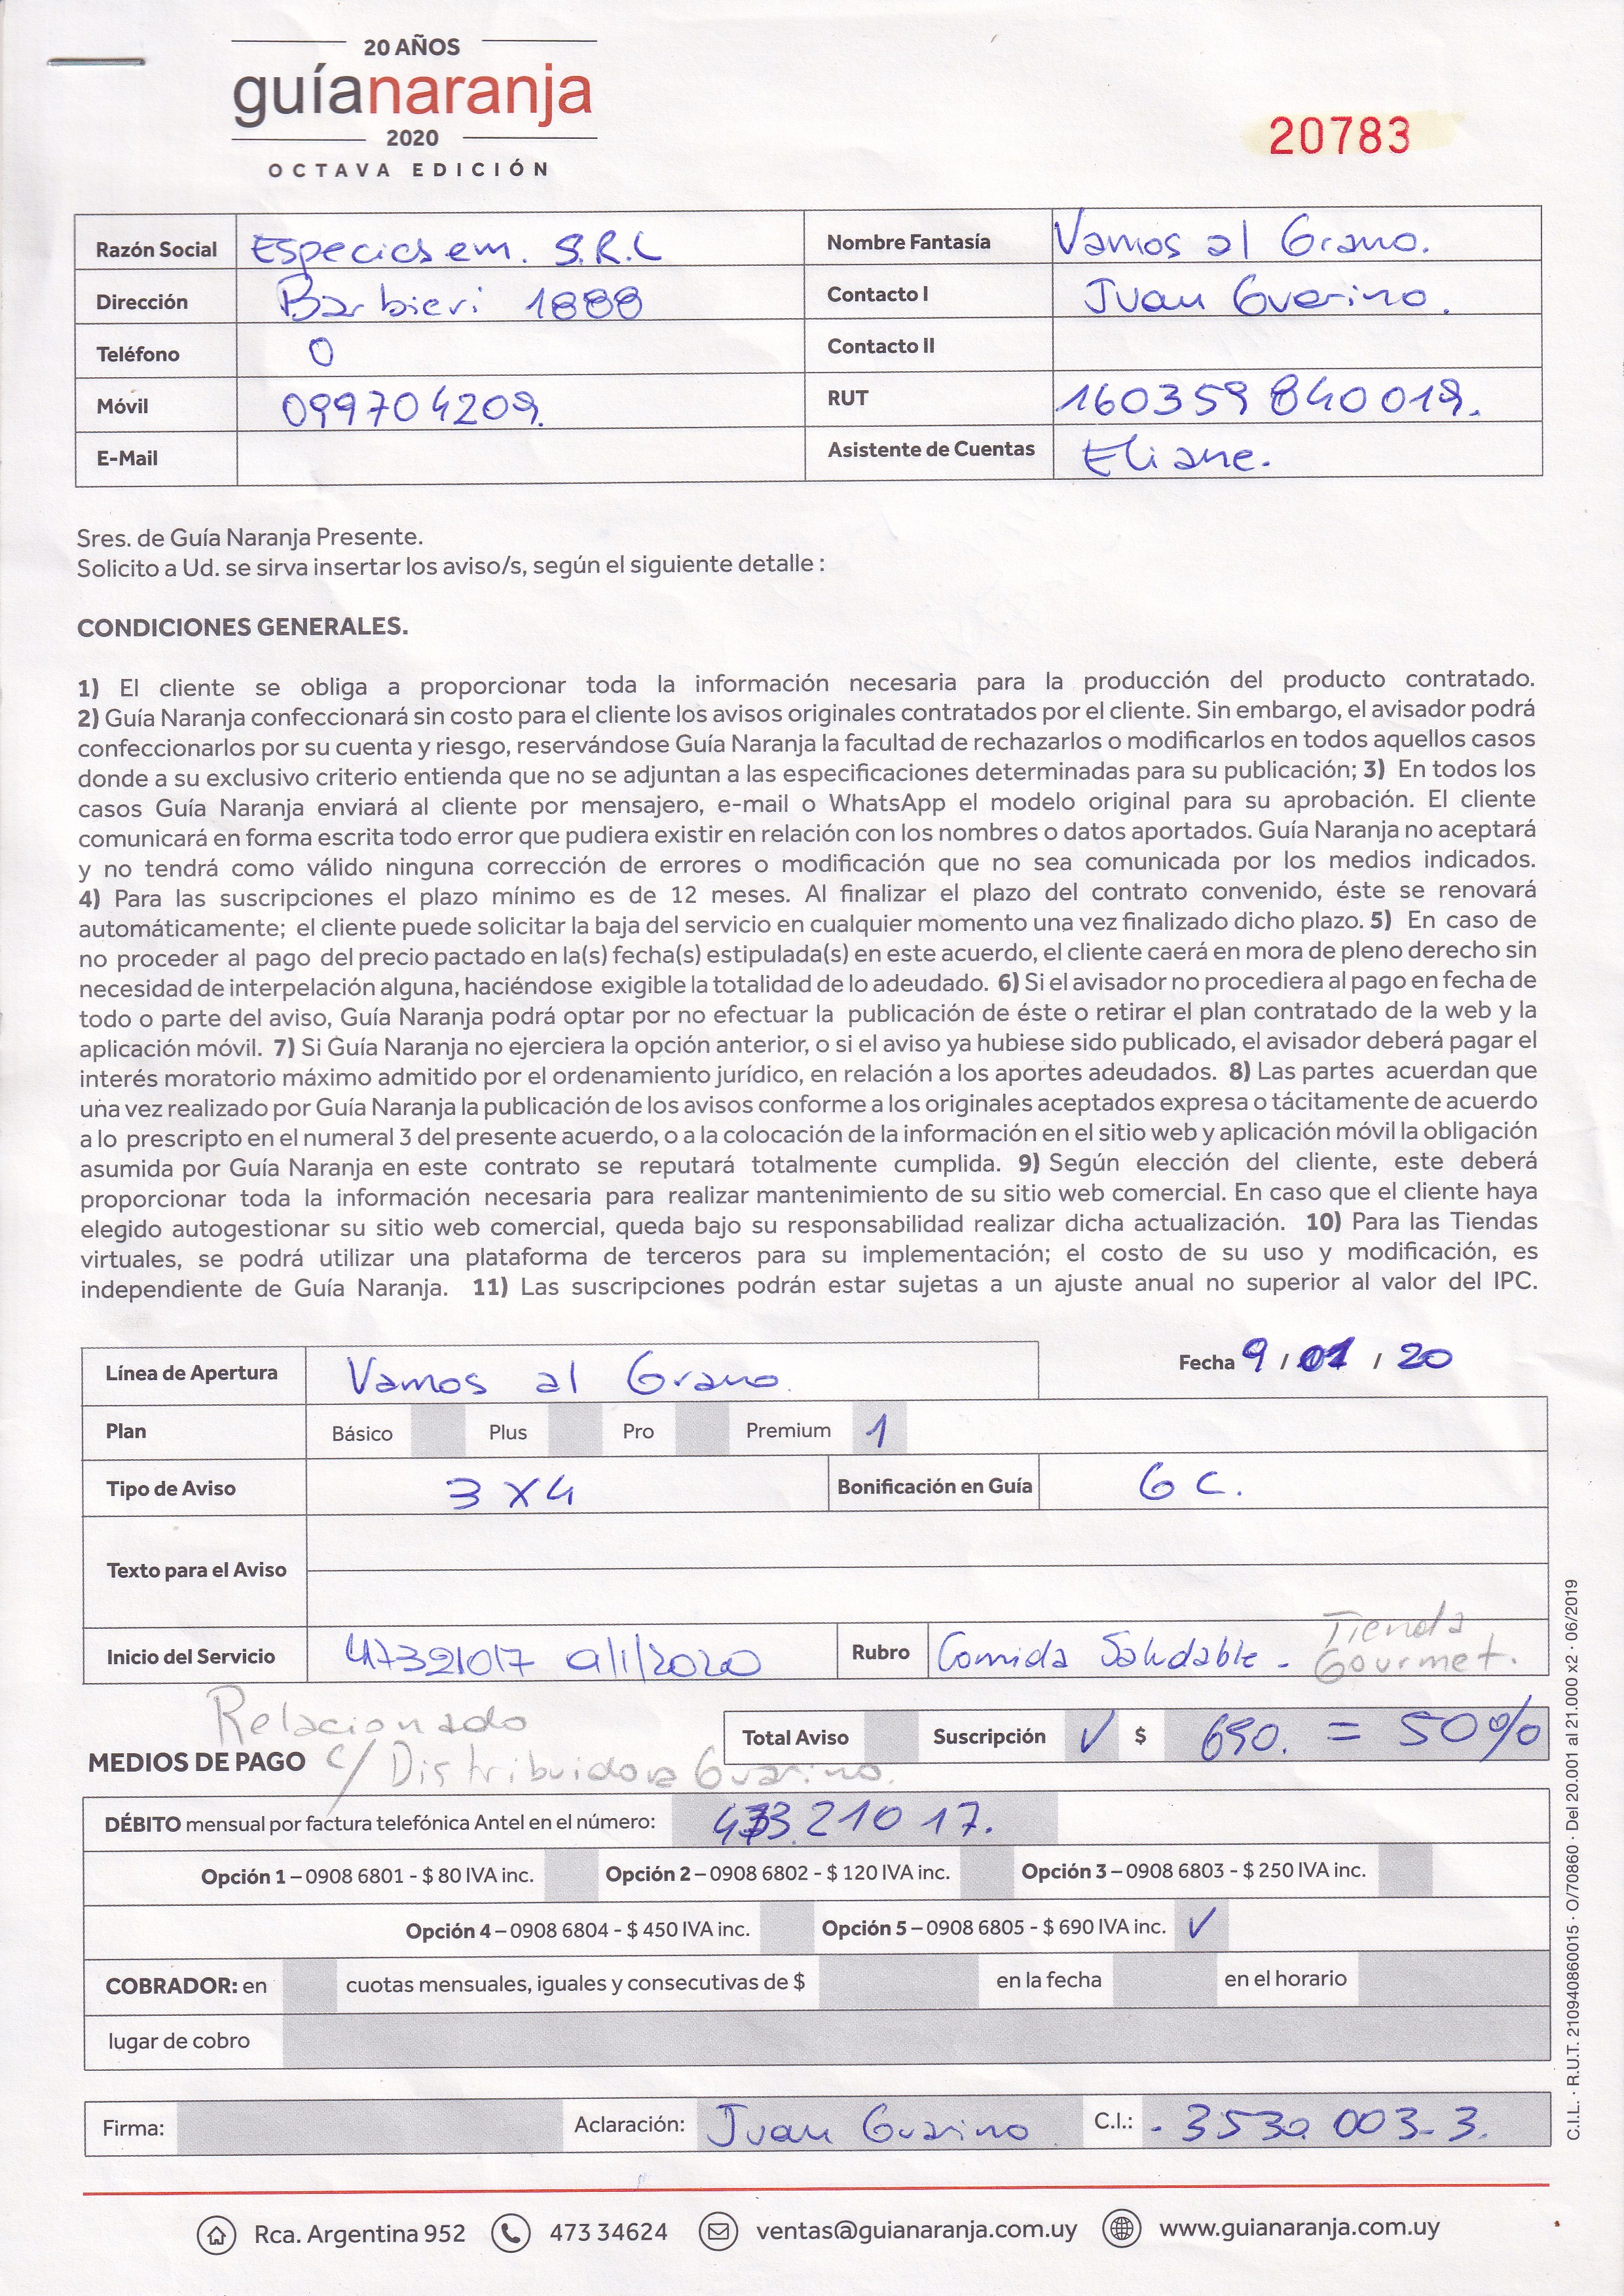 20 AÑOS
guíanaranja
2020
OCTAVA EDICIÓN
20783
Razón Social Especias em. S.R.L Nombre Fantasía Vamos al Grano.
Dirección Barbieri 1888 Contacto I Juan Guarino.
Teléfono 0 Contacto II
Móvil 099704209. RUT 160359840019.
E-Mail Asistente de Cuentas Eliane.
Sres. de Guía Naranja Presente.
Solicito a Ud. se sirva insertar los aviso/s, según el siguiente detalle :
CONDICIONES GENERALES.
1) El cliente se obliga a proporcionar toda la información necesaria para la producción del producto contratado.
2) Guía Naranja confeccionará sin costo para el cliente los avisos originales contratados por el cliente. Sin embargo, el avisador podrá
confeccionarlos por su cuenta y riesgo, reservándose Guía Naranja la facultad de rechazarlos o modificarlos en todos aquellos casos
donde a su exclusivo criterio entienda que no se adjuntan a las especificaciones determinadas para su publicación; 3) En todos los
casos Guía Naranja enviará al cliente por mensajero, e-mail o WhatsApp el modelo original para su aprobación. El cliente
comunicará en forma escrita todo error que pudiera existir en relación con los nombres o datos aportados. Guía Naranja no aceptará
y no tendrá como válido ninguna corrección de errores o modificación que no sea comunicada por los medios indicados.
4) Para las suscripciones el plazo mínimo es de 12 meses. Al finalizar el plazo del contrato convenido, éste se renovará
automáticamente; el cliente puede solicitar la baja del servicio en cualquier momento una vez finalizado dicho plazo. 5) En caso de
no proceder al pago del precio pactado en la(s) fecha(s) estipulada(s) en este acuerdo, el cliente caerá en mora de pleno derecho sin
necesidad de interpelación alguna, haciéndose exigible la totalidad de lo adeudado. 6) Si el avisador no procediera al pago en fecha de
todo o parte del aviso, Guía Naranja podrá optar por no efectuar la publicación de éste o retirar el plan contratado de la web y la
aplicación móvil. 7) Si Guía Naranja no ejerciera la opción anterior, o si el aviso ya hubiese sido publicado, el avisador deberá pagar el
interés moratorio máximo admitido por el ordenamiento jurídico, en relación a los aportes adeudados. 8) Las partes acuerdan que
una vez realizado por Guía Naranja la publicación de los avisos conforme a los originales aceptados expresa o tácitamente de acuerdo
a lo prescripto en el numeral 3 del presente acuerdo, o a la colocación de la información en el sitio web y aplicación móvil la obligación
asumida por Guía Naranja en este contrato se reputará totalmente cumplida. 9) Según elección del cliente, este deberá
proporcionar toda la información necesaria para realizar mantenimiento de su sitio web comercial. En caso que el cliente haya
elegido autogestionar su sitio web comercial, queda bajo su responsabilidad realizar dicha actualización. 10) Para las Tiendas
virtuales, se podrá utilizar una plataforma de terceros para su implementación; el costo de su uso y modificación, es
independiente de Guía Naranja. 11) Las suscripciones podrán estar sujetas a un ajuste anual no superior al valor del IPC.
Línea de Apertura Vamos al Grano. Fecha 9 / 01 / 20
Plan Básico Plus Pro Premium 1
Tipo de Aviso 3 x 4 Bonificación en Guía 6 C.
Texto para el Aviso
Inicio del Servicio 47321017 9/1/2020 Rubro Comida Saludable - Tienda
Gourmet.
Relacionado
Total Aviso Suscripción ✓ $ 690. = 50%
MEDIOS DE PAGO c/ Distribuidora Guarino.
DÉBITO mensual por factura telefónica Antel en el número: 473.210 17.
Opción 1 – 0908 6801 - $ 80 IVA inc. Opción 2 – 0908 6802 - $ 120 IVA inc. Opción 3 – 0908 6803 - $ 250 IVA inc.
Opción 4 – 0908 6804 - $ 450 IVA inc. Opción 5 – 0908 6805 - $ 690 IVA inc. ✓
COBRADOR: en cuotas mensuales, iguales y consecutivas de $ en la fecha en el horario
lugar de cobro
Firma: Aclaración: Juan Guarino C.I.: - 3530 003-3.
Rca. Argentina 952 473 34624 ventas@guianaranja.com.uy www.guianaranja.com.uy
C.I.L. · R.U.T. 210940860015 · O/70860 · Del 20.001 al 21.000 x2 · 06/2019